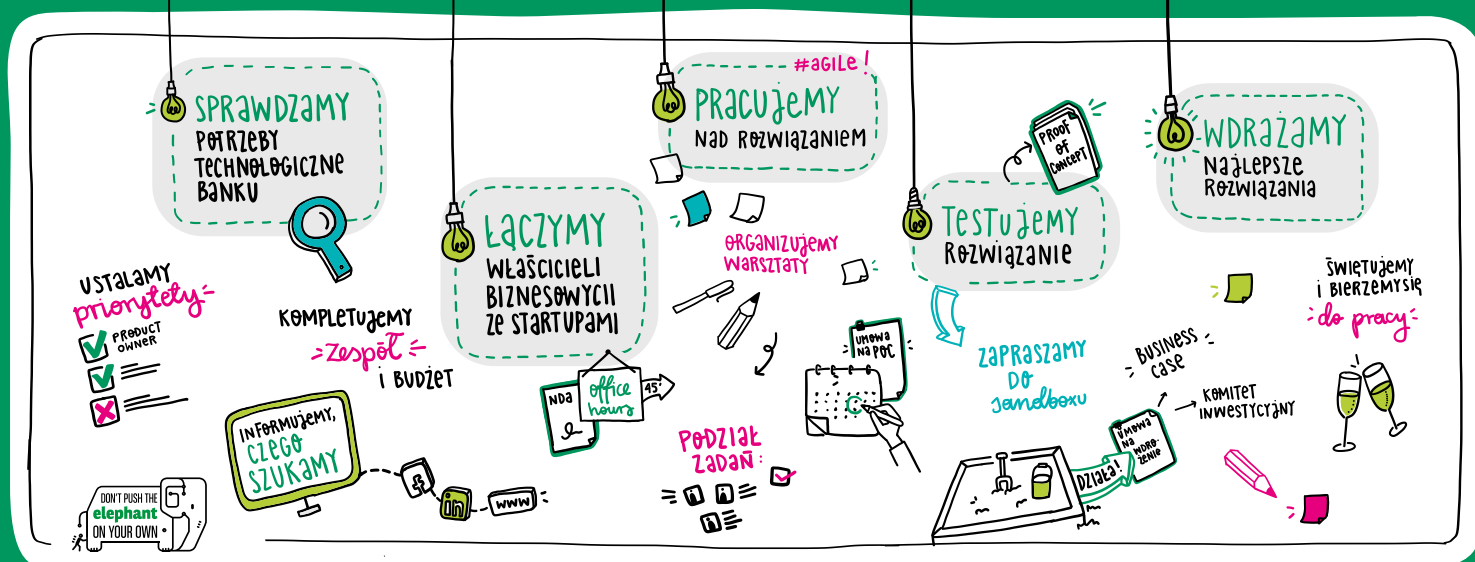 SPRAWDZAMY
POTRZEBY
TECHNOLOGICZNE
BANKU
USTALAMY
priorytety
PRODUCT
OWNER
KOMPLETUJEMY
zespół
i BUDŻET
INFORMUJEMY,
CZEGO
SZUKAMY
f
in
www
DON'T PUSH THE
elephant
ON YOUR OWN
ŁĄCZYMY
WŁAŚCICIELI
BIZNESOWYCH
ZE STARTUPAMI
NDA
office
hours
45'
#AGILE!
PRACUJEMY
NAD ROZWIĄZANIEM
ORGANIZUJEMY
WARSZTATY
UMOWA
NA POC
PODZIAŁ
ZADAŃ:
PROOF
OF
CONCEPT
TESTUJEMY
ROZWIĄZANIE
ZAPRASZAMY
DO
sandboxu
DZIAŁA!
UMOWA
NA
WDRO-
ŻENIE
BUSINESS
CASE
KOMITET
INWESTYCYJNY
WDRAŻAMY
NAJLEPSZE
ROZWIĄZANIA
ŚWIĘTUJEMY
I BIERZEMY SIĘ
do pracy